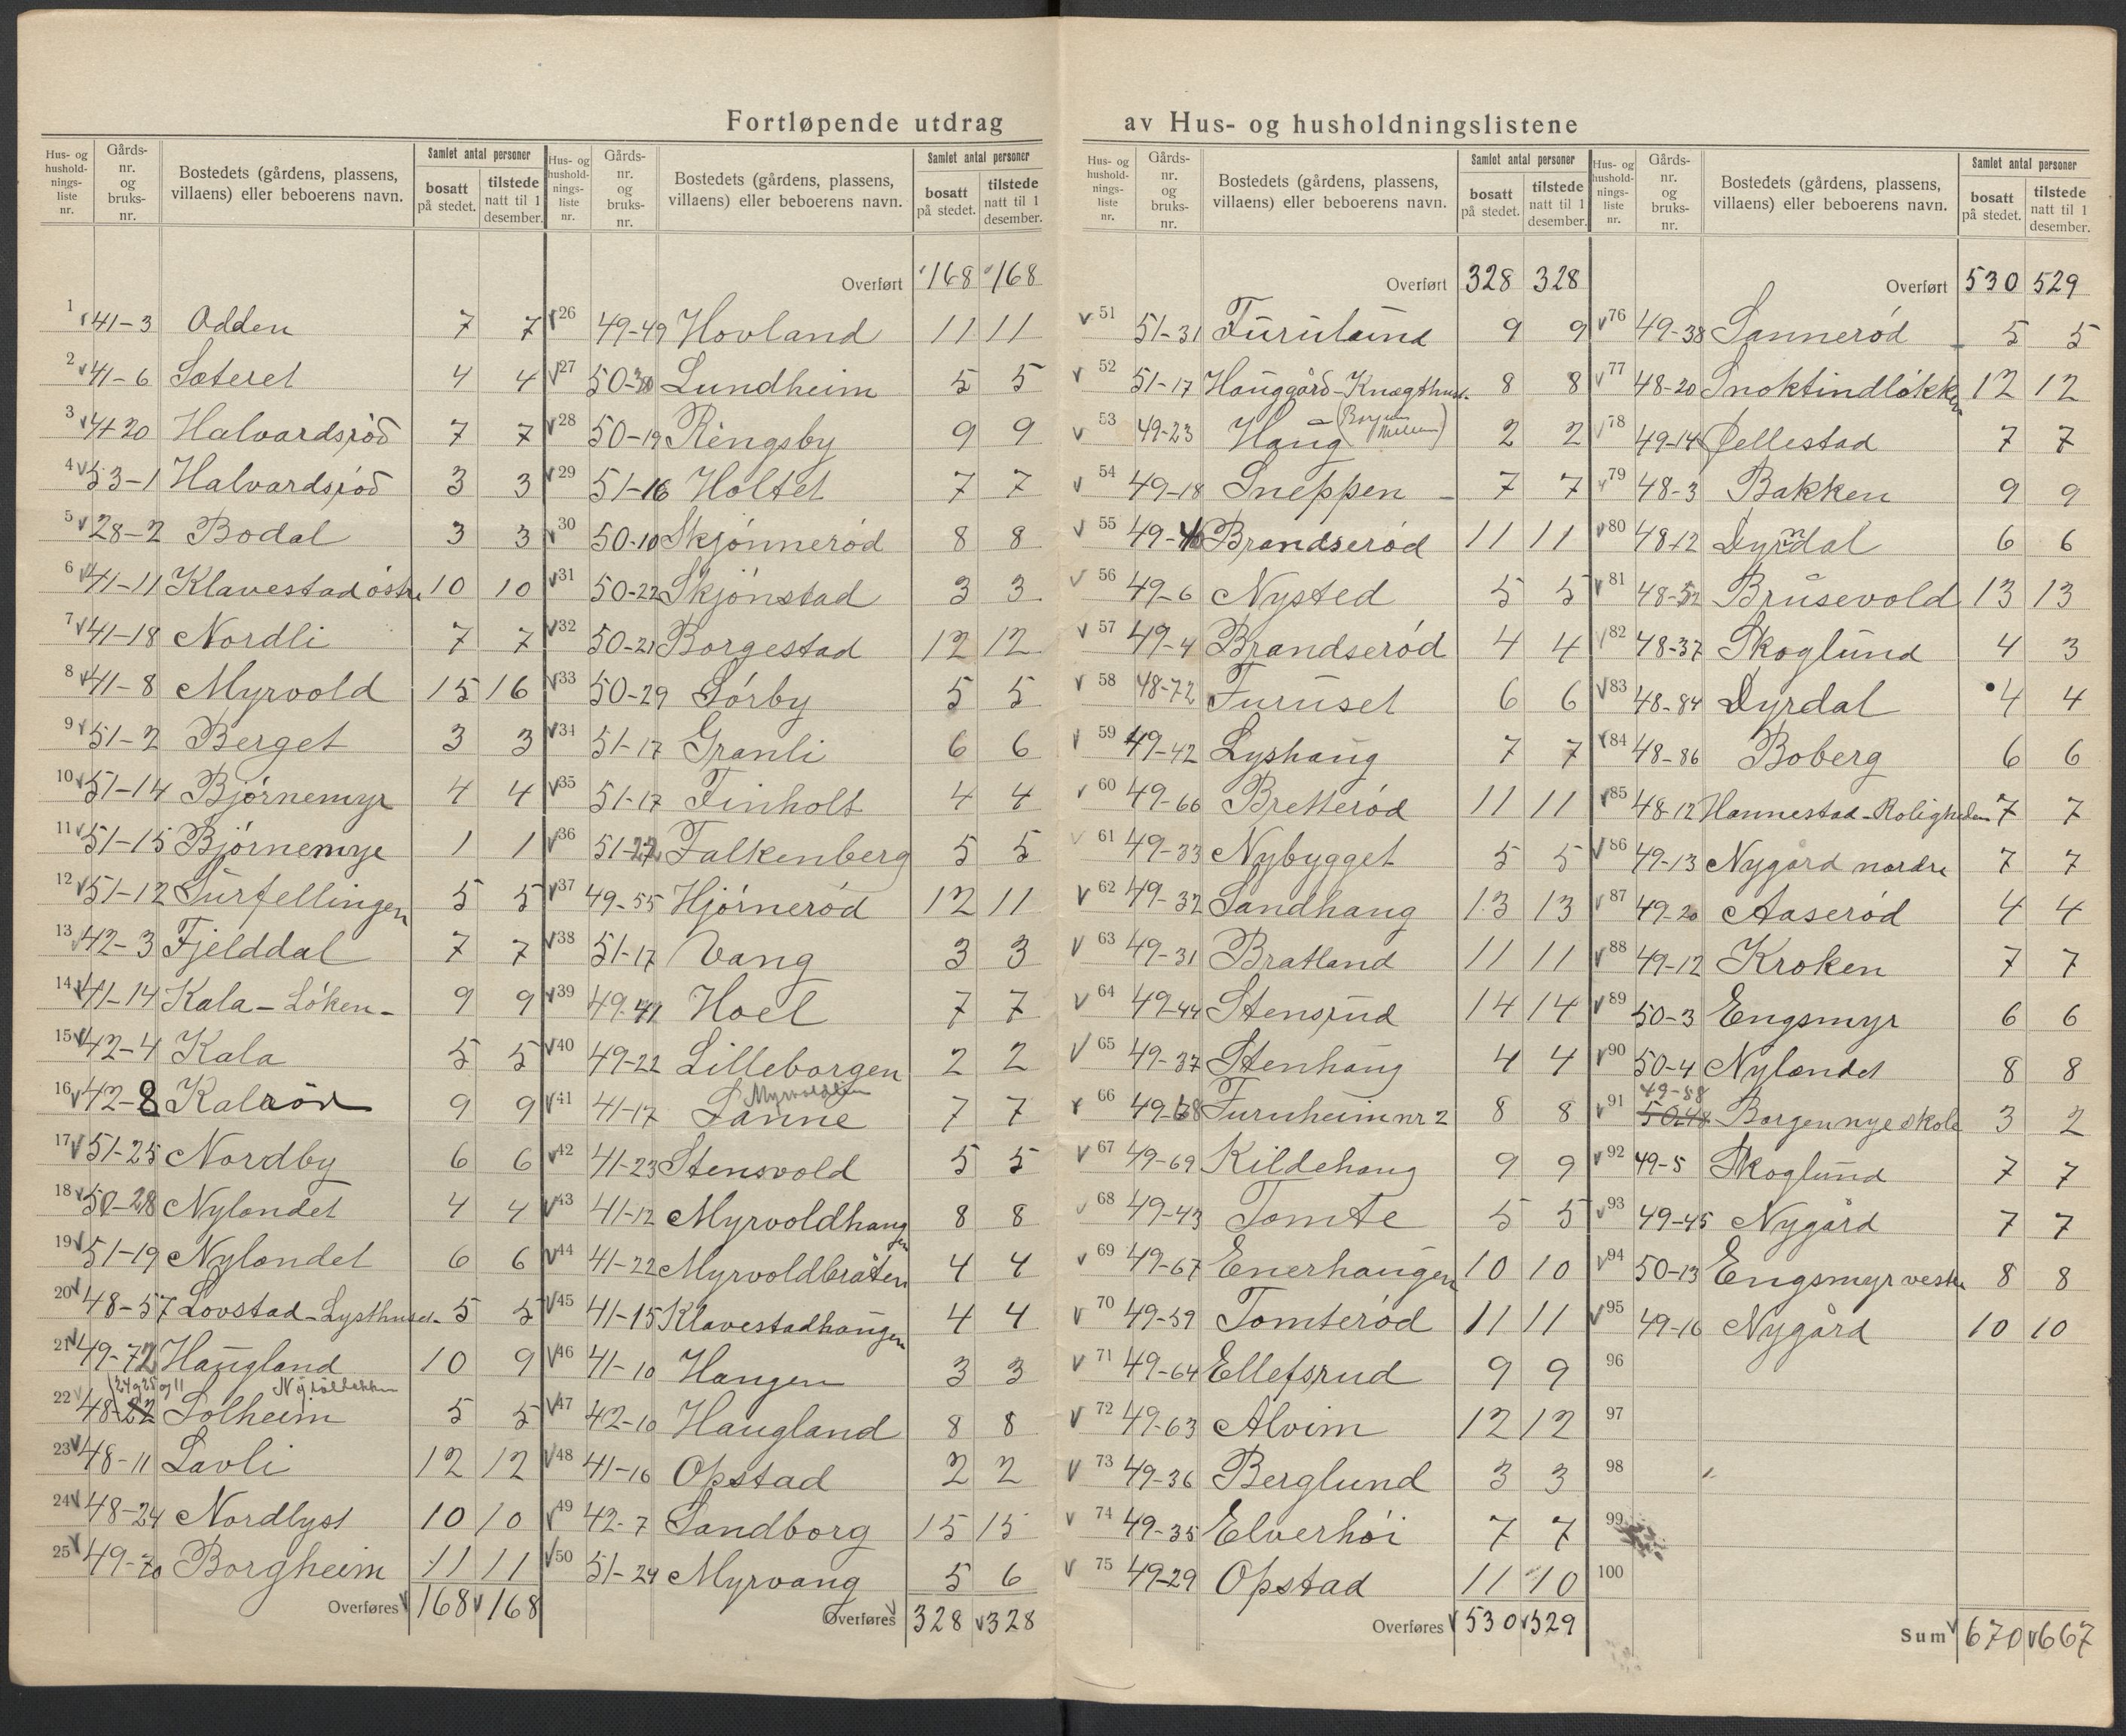 Fortløpende utdrag av Hus- og husholdningslistene
Hus- og husholdnings-liste nr. | Gårds-nr. og bruks-nr. | Bostedets (gårdens, plassens, villaens) eller beboerens navn. | Samlet antal personer | bosatt på stedet. | tilstede natt til 1 desember.
1 41-3 Odden 7 7
2 41-6 Sæteret 4 4
3 41-20 Halvardsrød 7 7
4 53-1 Halvardsrød 3 3
5 28-2 Bodal 3 3
6 41-11 Klavestad østre 10 10
7 41-18 Nordli 7 7
8 41-8 Myrvold 15 16
9 51-2 Berget 3 3
10 51-14 Bjørnemyr 4 4
11 51-15 Bjørnemyr 1 1
12 51-12 Surfellingen 5 5
13 42-3 Fjelddal 7 7
14 41-14 Kala-Løken- 9 9
15 42-4 Kala 5 5
16 42-8 Kalarød 9 9
17 51-25 Nordby 6 6
18 50-28 Nylandet 4 4
19 51-19 Nylandet 6 6
20 48-57 Lovstad-Lysthuset- 5 5
21 49-72 Haugland 10 9
22 48- Solheim 5 5
23 48-11 Lavli 12 12
24 48-24 Nordlyst 10 10
25 49-70 Borgheim 11 11
Overføres 168 168
Hus- og husholdnings-liste nr. | Gårds-nr. og bruks-nr. | Bostedets (gårdens, plassens, villaens) eller beboerens navn. | Samlet antal personer | bosatt på stedet. | tilstede natt til 1 desember.
Overført 168 168
26 49-49 Hovland 11 11
27 50- Lundheim 5 5
28 50-19 Ringsby 9 9
29 51-16 Holtet 7 7
30 50-10 Skjønnerød 8 8
31 50-22 Skjønstad 3 3
32 50-21 Borgestad 12 12
33 50-29 Sørby 5 5
34 51-17 Granli 6 6
35 51-17 Finholt 4 4
36 51-22 Falkenberg 5 5
37 49-55 Hjørnerød 12 11
38 51-17 Vang 3 3
39 49-41 Hoel 7 7
40 49-22 Lilleborgen 2 2
41 41-17 Sanne 7 7
42 41-23 Stensvold 5 5
43 41-12 Myrvoldhaugen 8 8
44 41-22 Myrvoldbråten 4 4
45 41-15 Klavestadhaugen 4 4
46 41-10 Haugen 3 3
47 42-10 Haugland 8 8
48 41-16 Opstad 2 2
49 42-7 Sandborg 15 15
50 51-24 Myrvang 5 6
Overføres 328 328
Hus- og husholdnings-liste nr. | Gårds-nr. og bruks-nr. | Bostedets (gårdens, plassens, villaens) eller beboerens navn. | Samlet antal personer | bosatt på stedet. | tilstede natt til 1 desember.
Overført 328 328
51 51-31 Furulund 9 9
52 51-17 Hauggård-Knægthus- 8 8
53 49-23 Haug 2 2
54 49-18 Sneppen - 7 7
55 49-40 Brandserød 11 11
56 49-6 Nysted 5 5
57 49-4 Brandserød 4 4
58 48-72 Furuset 6 6
59 49-42 Lyshaug 7 7
60 49-66 Bretterød 11 11
61 49-33 Nybygget 5 5
62 49-32 Sandhaug 13 13
63 49-31 Bratland 11 11
64 49-44 Stensrud 14 14
65 49-37 Stenhaug 4 4
66 49-68 Furuheim nr 2 8 8
67 49-69 Kildehaug 9 9
68 49-43 Tomte 5 5
69 49-67 Enerhaugen 10 10
70 49-59 Tomterød 11 11
71 49-64 Ellefsrud 9 9
72 49-63 Alvim 12 12
73 49-36 Berglund 3 3
74 49-35 Elverhøi 7 7
75 49-29 Opstad 11 10
Overføres 530 529
Hus- og husholdnings-liste nr. | Gårds-nr. og bruks-nr. | Bostedets (gårdens, plassens, villaens) eller beboerens navn. | Samlet antal personer | bosatt på stedet. | tilstede natt til 1 desember.
Overført 530 529
76 49-38 Sannerød 5 5
77 48-20 Snoktindløkken 12 12
78 49-14 Jellestad 7 7
79 48-3 Bakken 9 9
80 48-12 Dyrdal 6 6
81 48-52 Brusevold 13 13
82 48-37 Skoglund 4 3
83 48-84 Dyrdal 4 4
84 48-86 Boberg 6 6
85 48-12 Hannestad-Roligheden 7 7
86 49-13 Nygård nordre 7 7
87 49-20 Aaserød 4 4
88 49-12 Kroken 7 7
89 50-3 Engsmyr 6 6
90 50-4 Nylandet 8 8
49-88
91 Borgen nye skole 3 2
92 49-5 Skoglund 7 7
93 49-45 Nygård 7 7
94 50-13 Engsmyr vestre 8 8
95 49-16 Nygård 10 10
96
97
98
99
100
Sum 670 667